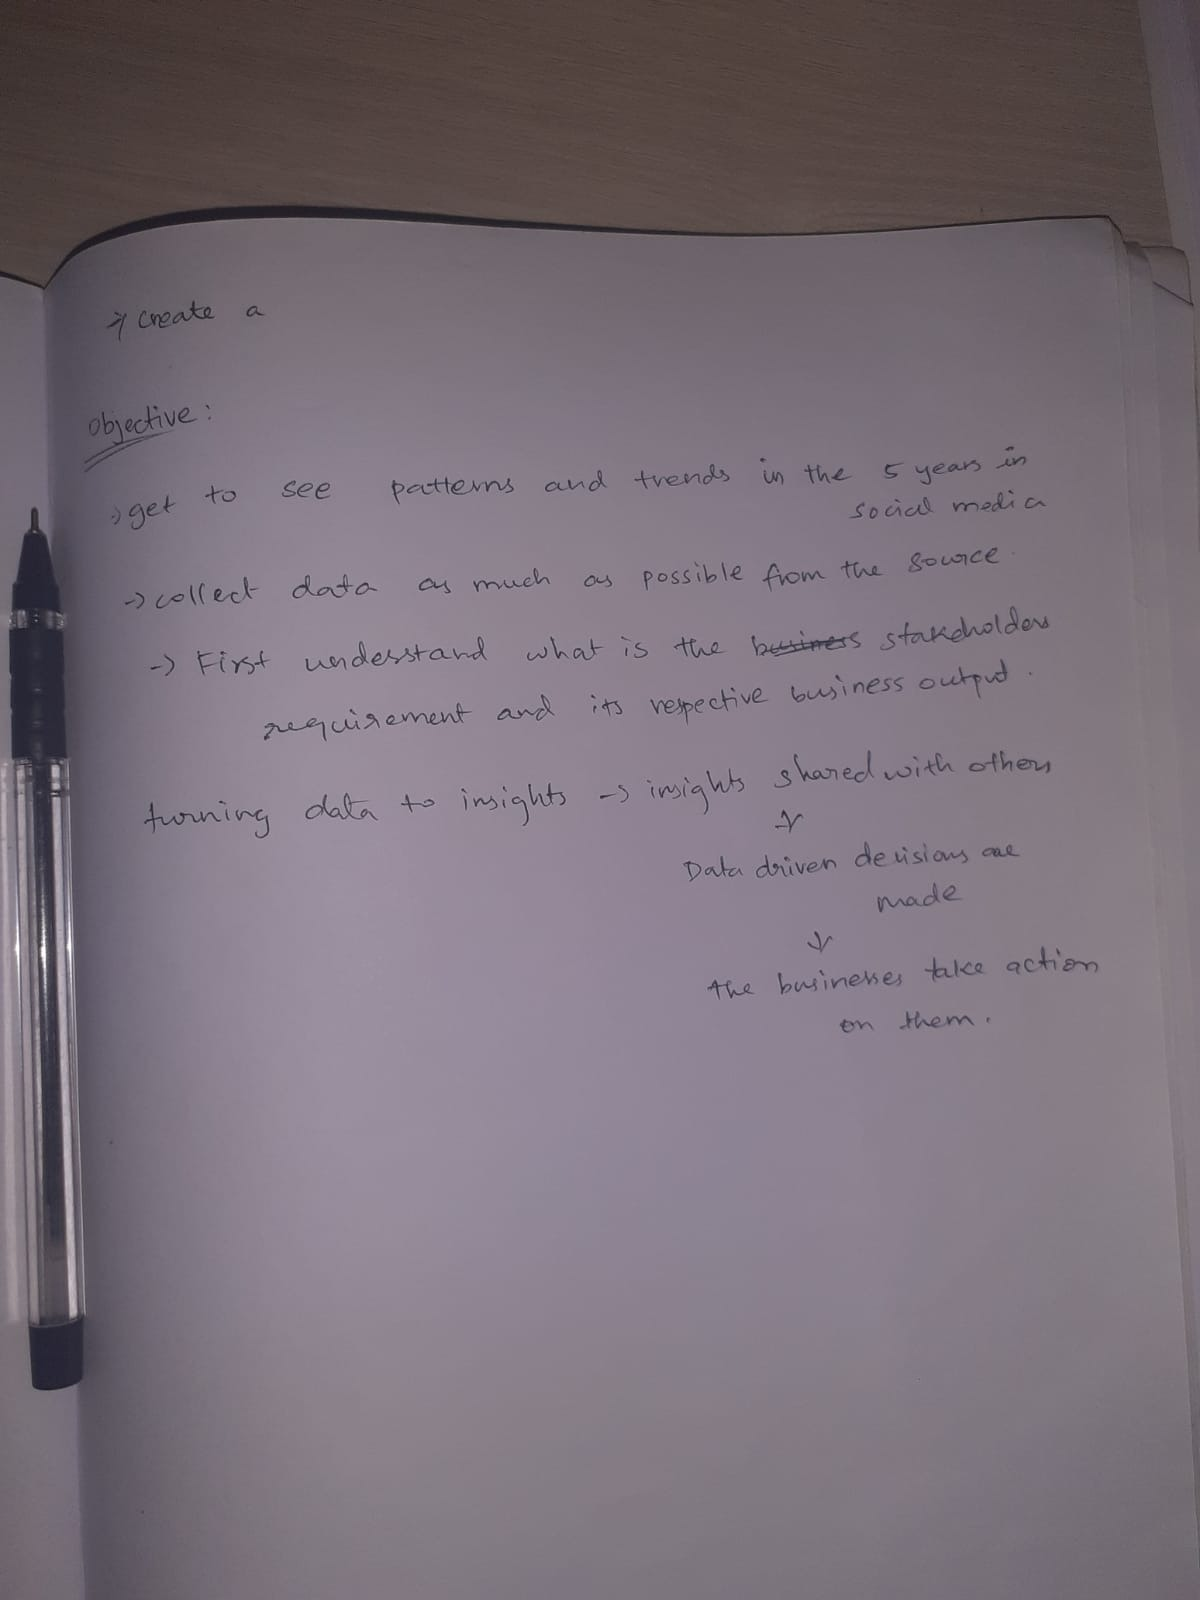 → create a
objective:
→ get to see patterns and trends in the 5 years in
social media
→ collect data as much as possible from the source.
→ First understand what is the business stakeholders
requirement and its respective business output.
turning data to insights → insights shared with others
↓
Data driven decisions are
made
↓
the businesses take action
on them.